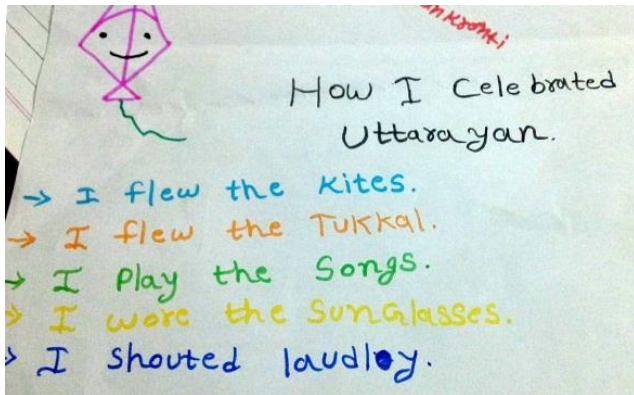 How I Celebrated
Uttarayan.
→ I flew the Kites.
→ I flew the Tukkal.
→ I Play the Songs.
→ I wore the Sunglasses.
→ I shouted laudly.